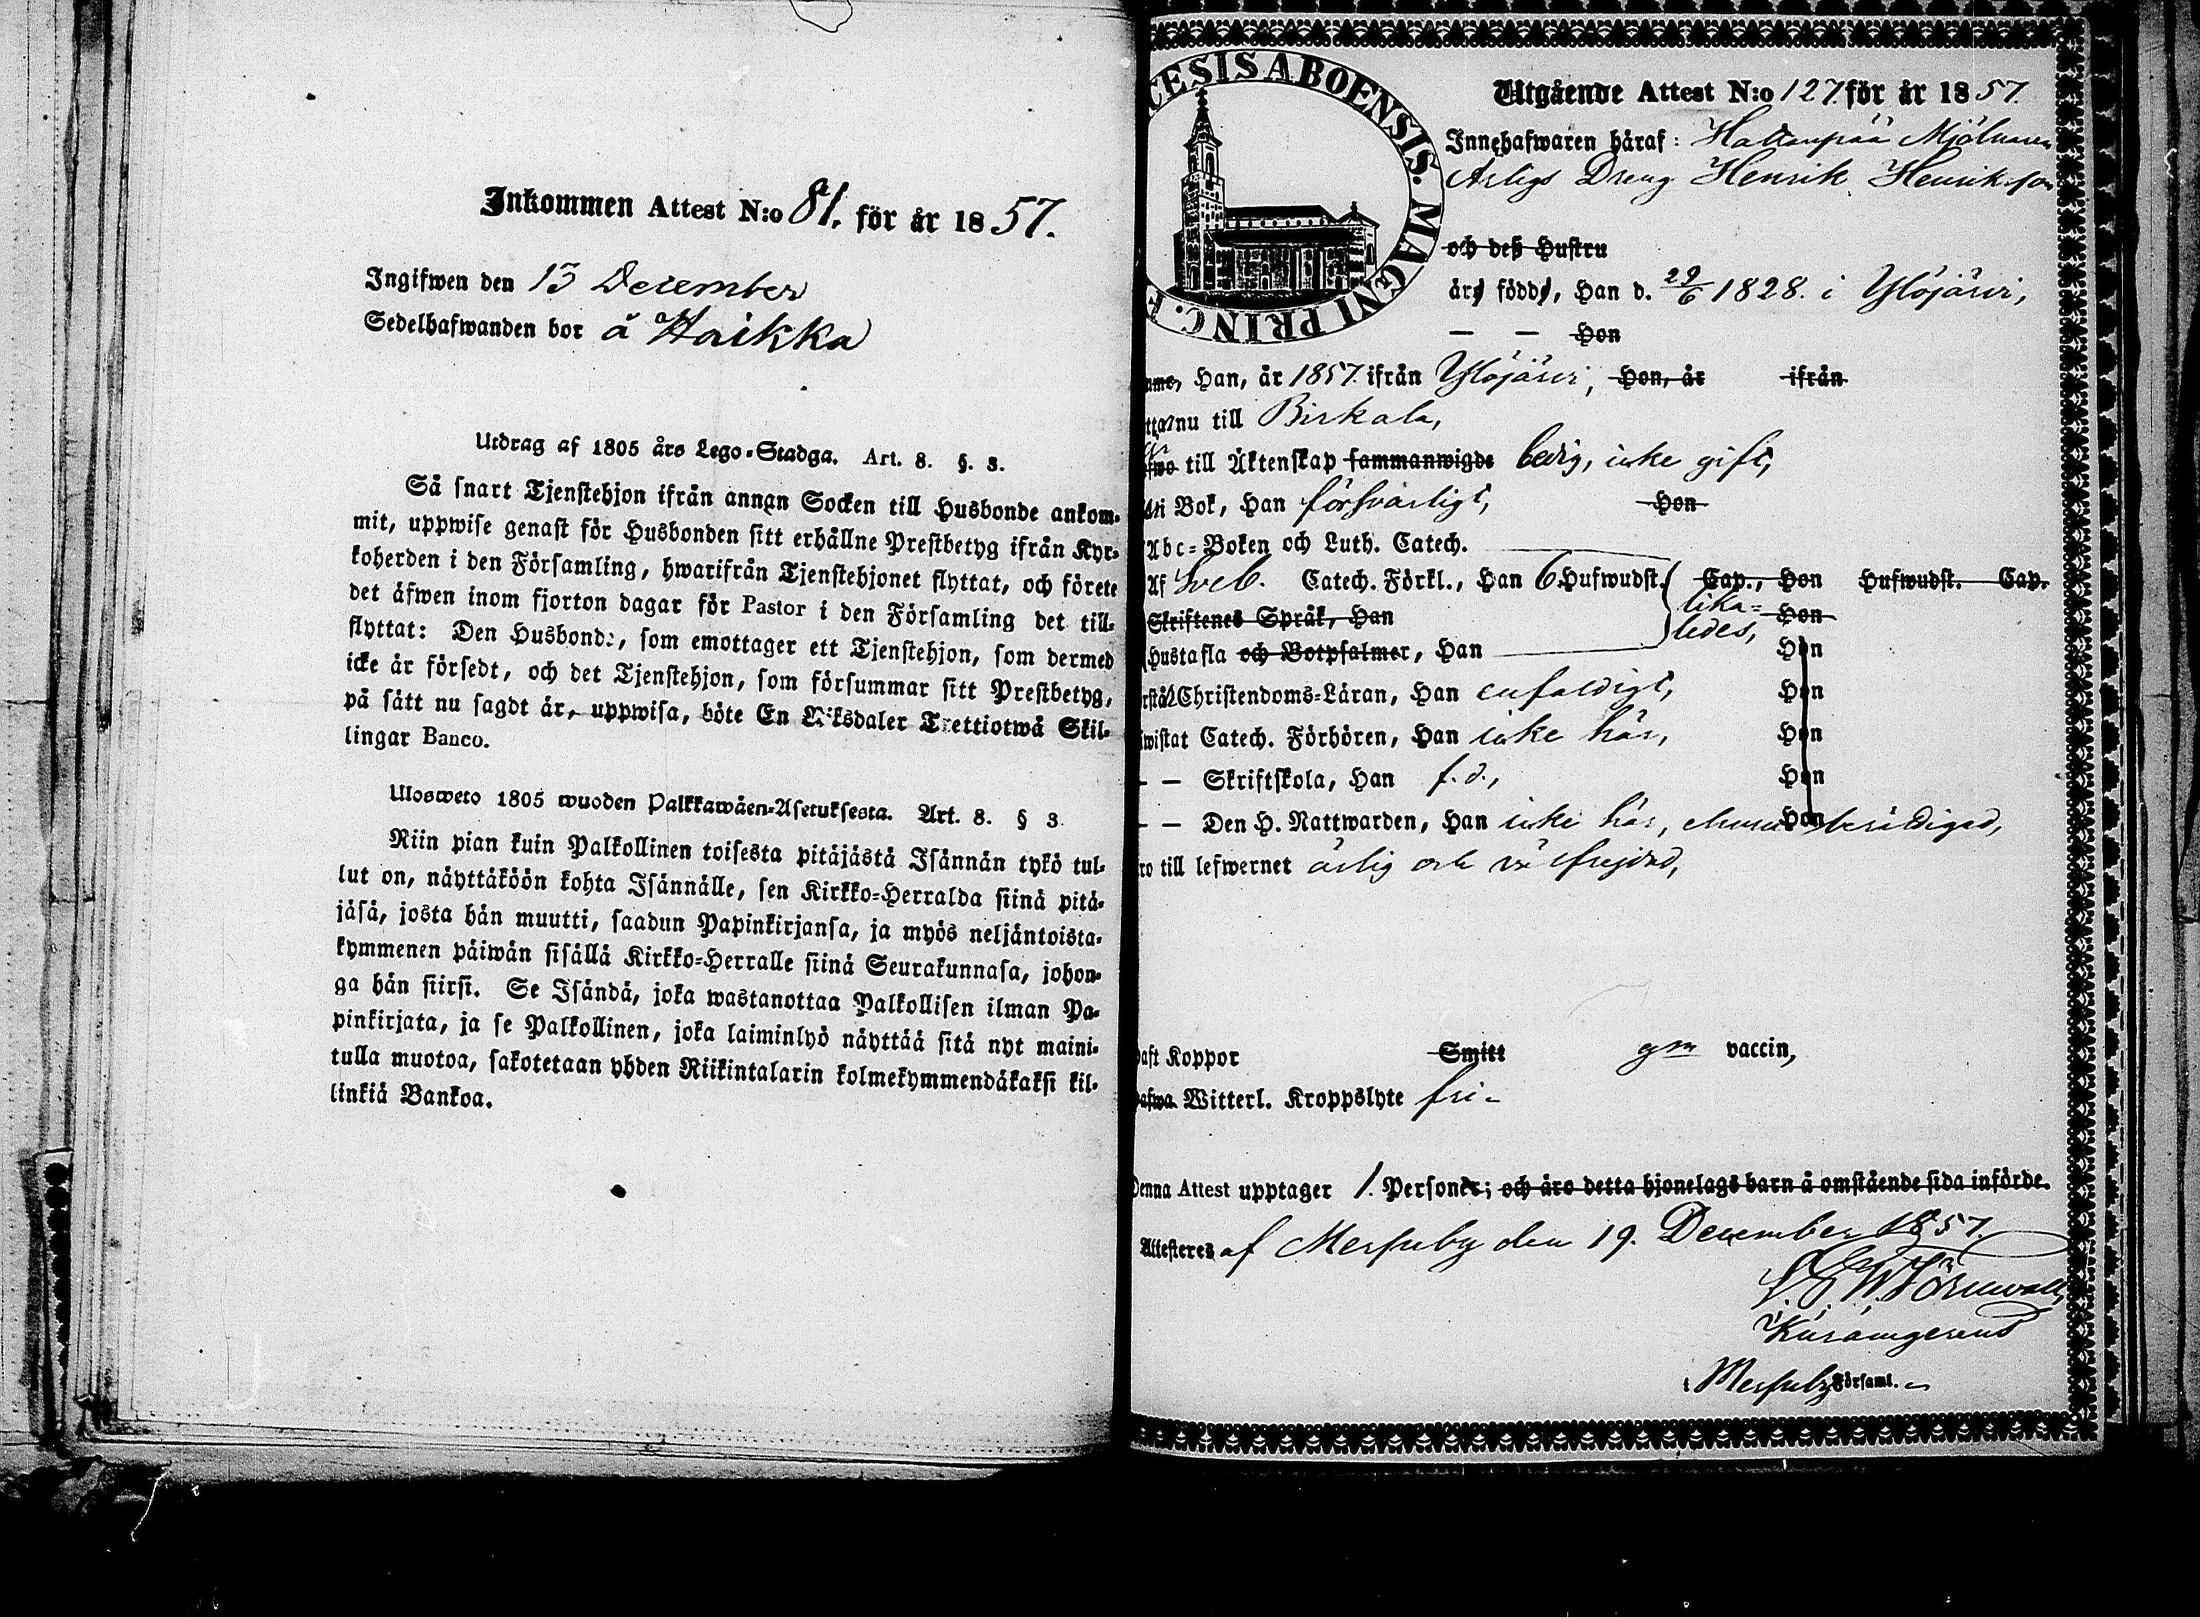 Inkommen Attest N:o 81. för år 1857.
Ingifwen den 13 December
Sedelhafwanden bor å Haikka
Utdrag af 1805 års Lego-Stadga. Art. 8. §. 3.
Så snart Tjenstehjon ifrån annan Socken till Husbonde ankom-
mit, uppwise genast för Husbonden sitt erhållne Prestbetyg ifrån Kyr-
koherden i den Församling, hwarifrån Tjenstehjonet flyttat, och förete
det äfwen inom fjorton dagar för Pastor i den Församling det till-
flyttat: Den Husbonde, som emottager ett Tjenstehjon, som dermed
icke är försedt, och det Tjenstehjon, som försummar sitt Prestbetyg,
på sätt nu sagdt är, uppwisa, böte En Riksdaler Trettiotwå Skil-
lingar Banco.
Ulosweto 1805 wuoden Palkkawäen-Asetuksesta. Art. 8. § 3
Niin pian kuin Palkollinen toisesta pitäjästä Isännän tykö tul-
lut on, näyttäköön kohta Isännälle, sen Kirkko-Herralda siinä pitä-
jäsä, josta hän muutti, saadun Papinkirjansa, ja myös neljäntoista-
kymmenen päiwän sisällä Kirkko-Herralle siinä Seurakunnasa, johon-
ga hän siirsi. Se Isändä, joka wastanottaa Palkollisen ilman Pa-
pinkirjata, ja se Palkollinen, joka laiminlyö näyttää sitä nyt maini-
tulla muotoa, sakotetaan yhden Riikintalarin kolmekymmendäkaksi kil-
linkiä Bankoa.
CESIS ABOENSIS. MAGNI PRINC. F
Utgående Attest N:o 127. för år 1857.
Innehafwaren häraf: Hattanpää Mjölnaren
Arligs Dreng Henrik Henriksson
och deß Hustru
äro födde, Han d. 29/6 1828. i Ylöjärvi,
— — Hon
Han, år 1857. ifrån Ylöjärvi, Hon, år ifrån
nu till Birkala,
till Äktenskap sammanwigde ledig, icke gift,
i Bok, Han försvarligt, Hon
Abc-Boken och Luth. Catech.
Af Sveb. Catech. Förkl., Han 6 Hufwudst. Cap., Hon Hufwudst. Cap.
Skriftenes Språk, Han lika- Hon
ledes,
Hustafla och Botpsalmer, Han Hon
Christendoms-Läran, Han enfaldigt, Hon
Catech. Förhören, Han icke här, Hon
— — Skriftskola, Han f.d., Hon
— — Den H. Nattwarden, Han icke här, ehuru berättigad, Hon
till lefwernet ärlig och väl frejdad,
Koppor Smitt gm vaccin,
Witterl. Kroppslyte fri-
Denna Attest upptager 1. Personer; och äro detta hjonelags barn å omstående sida införde.
Attesteres af Messuby den 19. December 1857.
Törnwall,
i Messuby Församl.